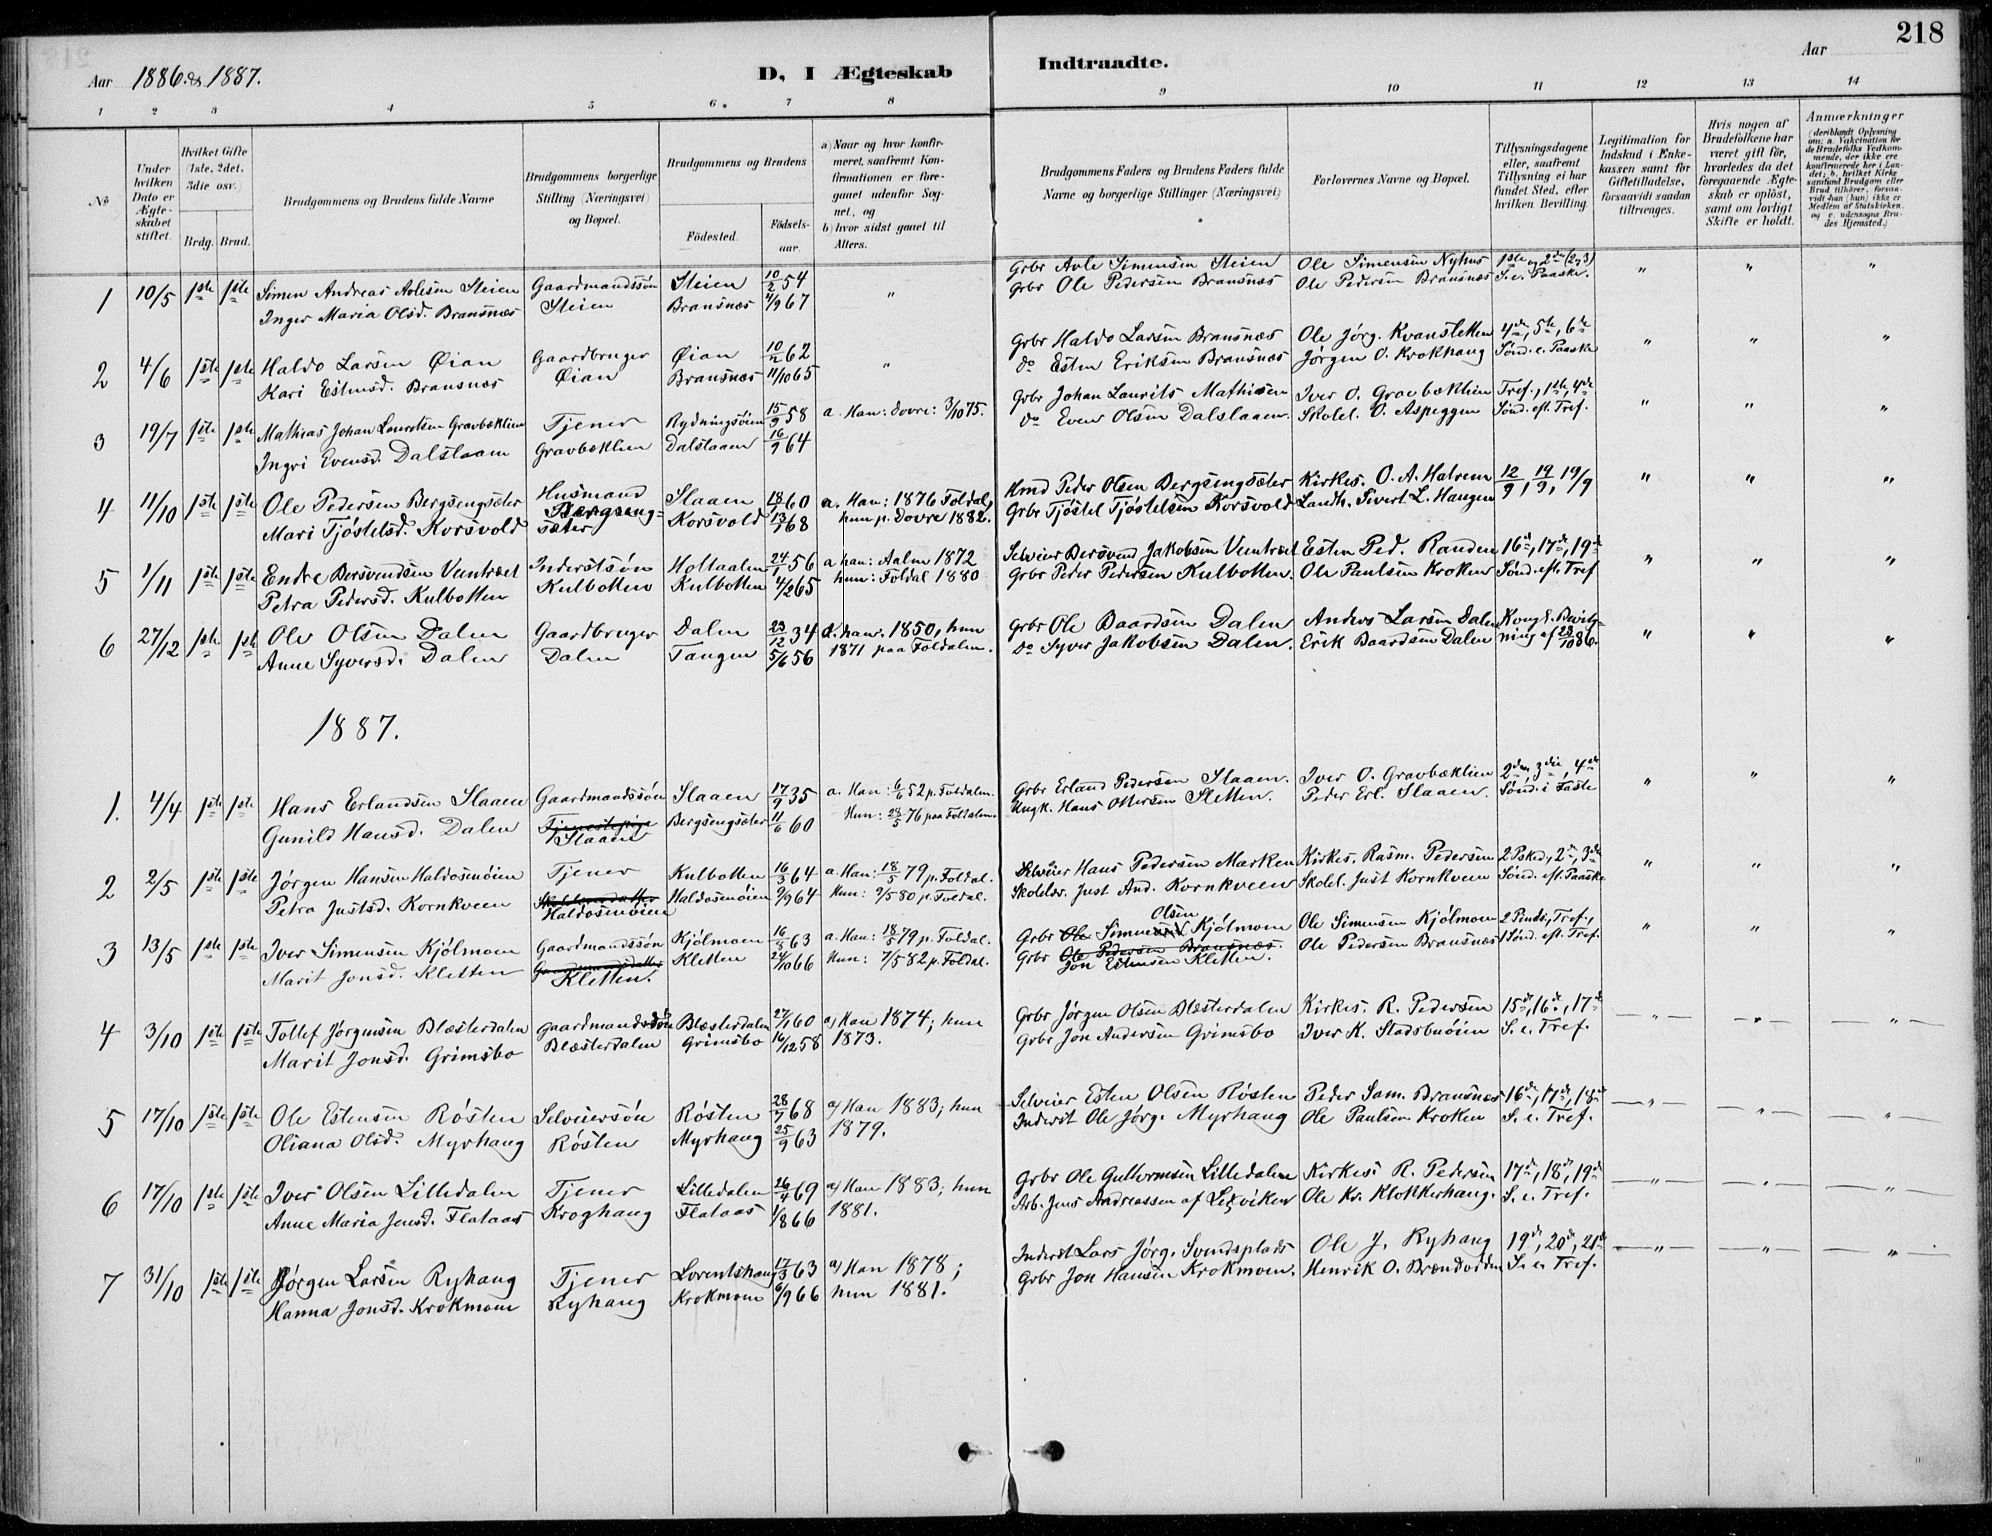 218
Aar 1886 & 1887.
D, I Ægteskab Indtraadte.
Aar
1 2 3 4 5 6. 7 8 9 10 11 12 13 14
No
Under hvilken Dato er Ægteskabet stiftet.
Hvilket Gifte (1ste, 2det, 3die osv.)
Brdg. Brud.
Brudgommens og Brudens fulde Navne
Brudgommens borgerlige Stilling (Næringsvei) og Bopæl.
Brudgommens og Brudens
Födested.
Födselsaar.
a) Naar og hvor konfirmeret, saafremt Konfirmationen er foregaaet udenfor Sognet, og
b) hvor sidst gaaet til Alters.
Brudgommens Faders og Brudens Faders fulde Navne og borgerlige Stillinger (Næringsvei)
Forlovernes Navne og Bopæl.
Tillysningsdagene eller, saafremt Tillysning ei har fundet Sted, efter hvilken Bevilling
Legitimation for Indskud i Enkekassen samt for Giftetilladelse, forsaavidt saadan tiltrænges.
Hvis nogen af Brudefolkene har været gift för, hvorledes da det foregaaende Ægteskab er oplöst, samt om lovligt Skifte er holdt.
Anmærkninger (deriblandt Oplysning om: a. Vakcination for de Brudefolks Vedkommende, der ikke ere konfirmerede her i Landet; b. hvilket Kirkesamfund Brudgom eller Brud tilhörer, forsaavidt han (hun) ikke er Medlem af Statskirken, og c. udensogns Brudes Hjemsted.)
1 10/5 1ste 1ste Simen Andreas Avlesen Steien Gaardmandssön Steien 10/2 54 " Grbr Avle Simensen Steien Ole Simensen Nyhus 1ste og 2den (2 og 3) " " "
Inger Maria Olsd. Bransnæs Steien Bransnæs 4/9 67 Grbr Ole Pedersen Bransnæs Ole Pedersen Bransnæs S. e. Paaske.
2 4/6 1ste 1ste Haldo Larsen Öian Gaardbruger Öian 10/2 62 " Grbr Haldo Larsen Bransnæs Ole Jörg. Kvansletten 4de, 5te, 6te " " "
Kari Estensd. Bransnæs Öian Bransnæs 11/10 65 do Esten Eriksen Bransnæs Jörgen O. Krokhaug Sönd. e. Paaske
3 19/7 1ste 1ste Mathias Johan Lauritsen Gravbæklien Tjener Rydningsöien 15/9 58 a. Han: Dovre: 3/10 75. Grbr Johan Laurits Mathisen Iver O. Gravbæklien Tref., 1ste, 4de " " "
Ingri Evensd. Dalslaaen Gravbæklien Dalslaaen 16/9 64 do Even Olsen Dalslaaen. Skolel. O. Aspeggen Sönd. eft. Tref.
4 11/10 1ste 1ste Ole Pedersen Bergsengsæter Husmand Slaaen 18/1 60 a. Han: 1876 Foldal, Hmd Peder Olsen Bergsengsæter Kirkes. O. A. Halrem 12/9, 19/9, 19/9 " " "
Mari Tjöstelsd. Korsvold Bergsengsæter Korsvold 13/9 68 hun p. Dovre 1882. Grbr Tjöstel Tjöstelsen Korsvold Landh. Sivert L. Haugen
5 1/11 1ste 1ste Endre Bersvendsen Ventræet Inderstsön Holtaalen 24/1 56 a han: Aalen 1872 Selveier Bersvend Jakobsen Ventræet Esten Ped. Randen 16de, 17de, 19de " " "
Petra Pedersd. Kulbotten Kulbotten Kulbotten 4/2 65 hun: Foldal 1880 Grbr Peder Pedersen Kulbotten. Ole Paulsen Kroken Sönd. eft. Tref
6 27/12 1ste 1ste Ole Olsen Dalen Gaardbruger Dalen 23/12 34 a. han: 1850, hun Grbr Ole Baardsen Dalen Anders Larsen Dalen Kongl. Bevilg- " " "
Anne Syversd. Dalen Dalen Tangen 5/6 56 1871 paa Foldalen. do Syver Jakobsen Dalen. Erik Baardsen Dalen ning af 28/10 86.
1887.
1. 4/4 1ste 1ste Hans Erlandsen Slaaen Gaardmandssön Slaaen 17/9 35 a. Han: 6/6 52 p. Foldalen. Grbr Erland Pedersen Slaaen. Iver O. Gravbæklien 2den, 3die, 4de " " "
Gunild Hansd. Dalen Tjenestepige Slaaen Bergsengsæter 11/6 60 Hun: 28/5 76 paa Foldalen. Ungk. Hans Ottersen Sletten. Peder Erl. Slaaen. Sönd. i Faste
2 2/5 1ste 1ste Jörgen Hansen Haldosmöien Tjener Kulbotten 16/3 64 a. Han: 18/5 79 p. Foldal. Selveier Hans Pedersen Marken Kirkes. Rasm. Pedersen 2 Pskd, 2de, 3de " " "
Petra Justsd. Kornkveen Haldosmöien Haldosmöien 9/9 64 Hun: 9/5 80 p. Foldal. Skolelær. Just And. Kornkveen Skolel. Just Kornkveen Sönd. eft. Paaske
3 13/5 1ste 1ste Iver Simensen Kjölmoen Gaardmandssön Kjölmoen 16/8 63 a. Han: 18/5 79 p. Foldal. Grbr Ole Simen Olsen Kjölmoen Ole Simensen Kjölmoen 2 Pinds., Tref., " " "
Marit Jonsd. Kletten Gaardmandsdatter Kletten. Kletten 24/10 66 Hun: 7/5 82 p. Foldal. Grbr Ole Pedersen Bransnæs. Jon Estensen Kletten. Ole Pedersen Bransnæs 1 Sönd. eft. Tref.
4 3/10 1ste 1ste Tollef Jörgensen Blæsterdalen Gaardmandssön Blæsterdalen 27/1 60 a) Han 1874; hun Grbr Jörgen Olsen Blæsterdalen Kirkes. R. Pedersen 15de, 16de, 17de " " "
Marit Jonsd. Grimsbo Blæsterdalen Grimsbo 16/12 58 1873. Grbr Jon Andersen Grimsbo Iver K. Stadsbuöien S. e. Tref.
5 17/10 1ste 1ste Ole Estensen Rösten Selveiersön Rösten 28/7 68 a) Han 1883; hun Selveier Esten Olsen Rösten Peder Sam. Bransnæs 16de, 17de, 18de " " "
Oliana Olsd. Myrhaug Rösten Myrhaug 25/9 63 1879. Inderst Ole Jörg. Myrhaug Ole Paulsen Kroken S. e. Tref.
6 17/10 1ste 1ste Iver Olsen Lilledalen Tjener Lilledalen 26/4 69 a) Han 1883; hun Grbr Ole Guttormsen Lilledalen Kirkes. R. Pedersen 17de, 18de, 19de " " "
Anne Maria Jensd. Flataas Kroghaug Flataas 1/8 66 1881. Arb. Jens Andreassen af Lexviken Ole Kr. Klokkerhaug. S. e. Tref.
7 31/10 1ste 1ste Jörgen Larsen Ryhaug Tjener Lorentshaug 17/3 63 a) Han 1878; Inderst Lars Jörg. Svendsplads Ole J. Ryhaug 19de, 20de, 21de " " "
Hanna Jonsd. Krokmoen Ryhaug Krokmoen 6/9 66 hun 1881. Grbr Jon Hansen Krokmoen. Henrik O. Brændodden S. e. Tref.